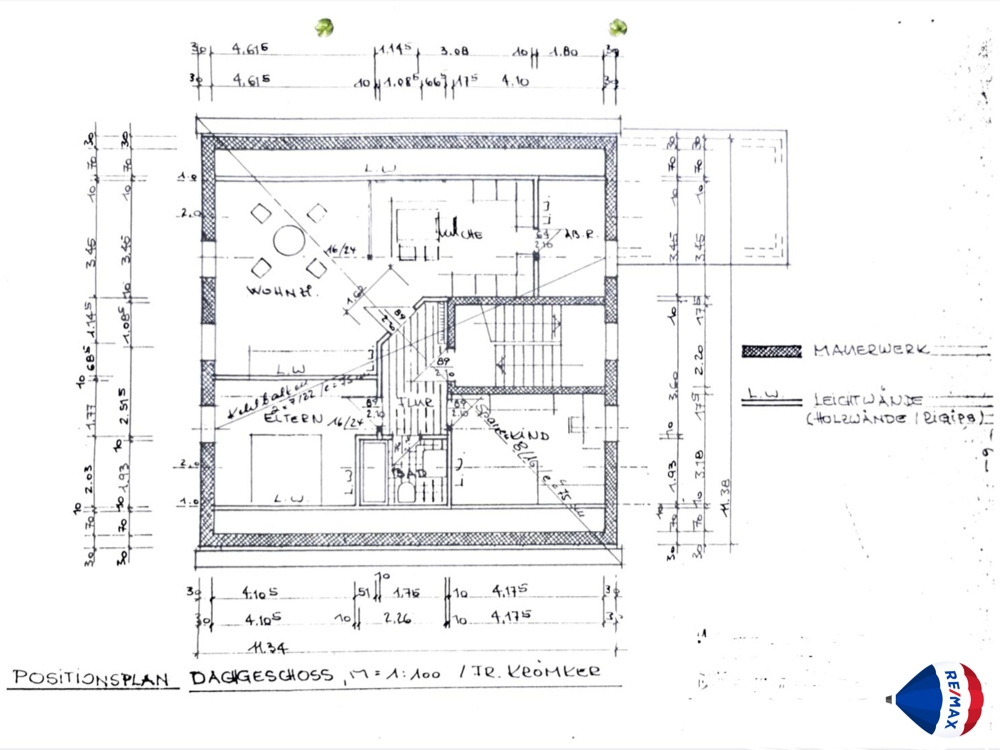 30 4.61⁵ 1.14⁵ 3.08 10 1.80 30
30 4.61⁵ 10 1.08⁵ 66⁵ 17⁵ 4.10 30
30 70 10 3.45 1.14⁵ 10 68⁵ 1.77 2.03 10 70 30
30 70 10 3.45 10 1.08⁵ 2.51⁵ 10 1.93 10 70 30
L.W
1.0
2.0
KÜCHE
AB.R.
16/24
WOHNZI.
1.60
89
2.10
89
L.W
Kehlbalken
ELTERN 16/24
89
2.10
FLUR
89
2.10
Sparren 8/16 e=75 cm
KIND
BAD
2.0
L.W
L.W
1.0
30 70 10 3.45 10 3.60 10 1.93 10 70 30
30 70 10 3.45 17⁵ 2.20 17⁵ 3.18 10 70 30
11.38
MAUERWERK
L.W LEICHTWÄNDE
(HOLZWÄNDE / RIGIPS)
30 4.10⁵ 51 10 1.75 10 4.17⁵ 30
30 4.10⁵ 10 2.26 10 4.17⁵ 30
11.34
POSITIONSPLAN DACHGESCHOSS, M = 1:100 / TR. KRÖMKER
RE/MAX